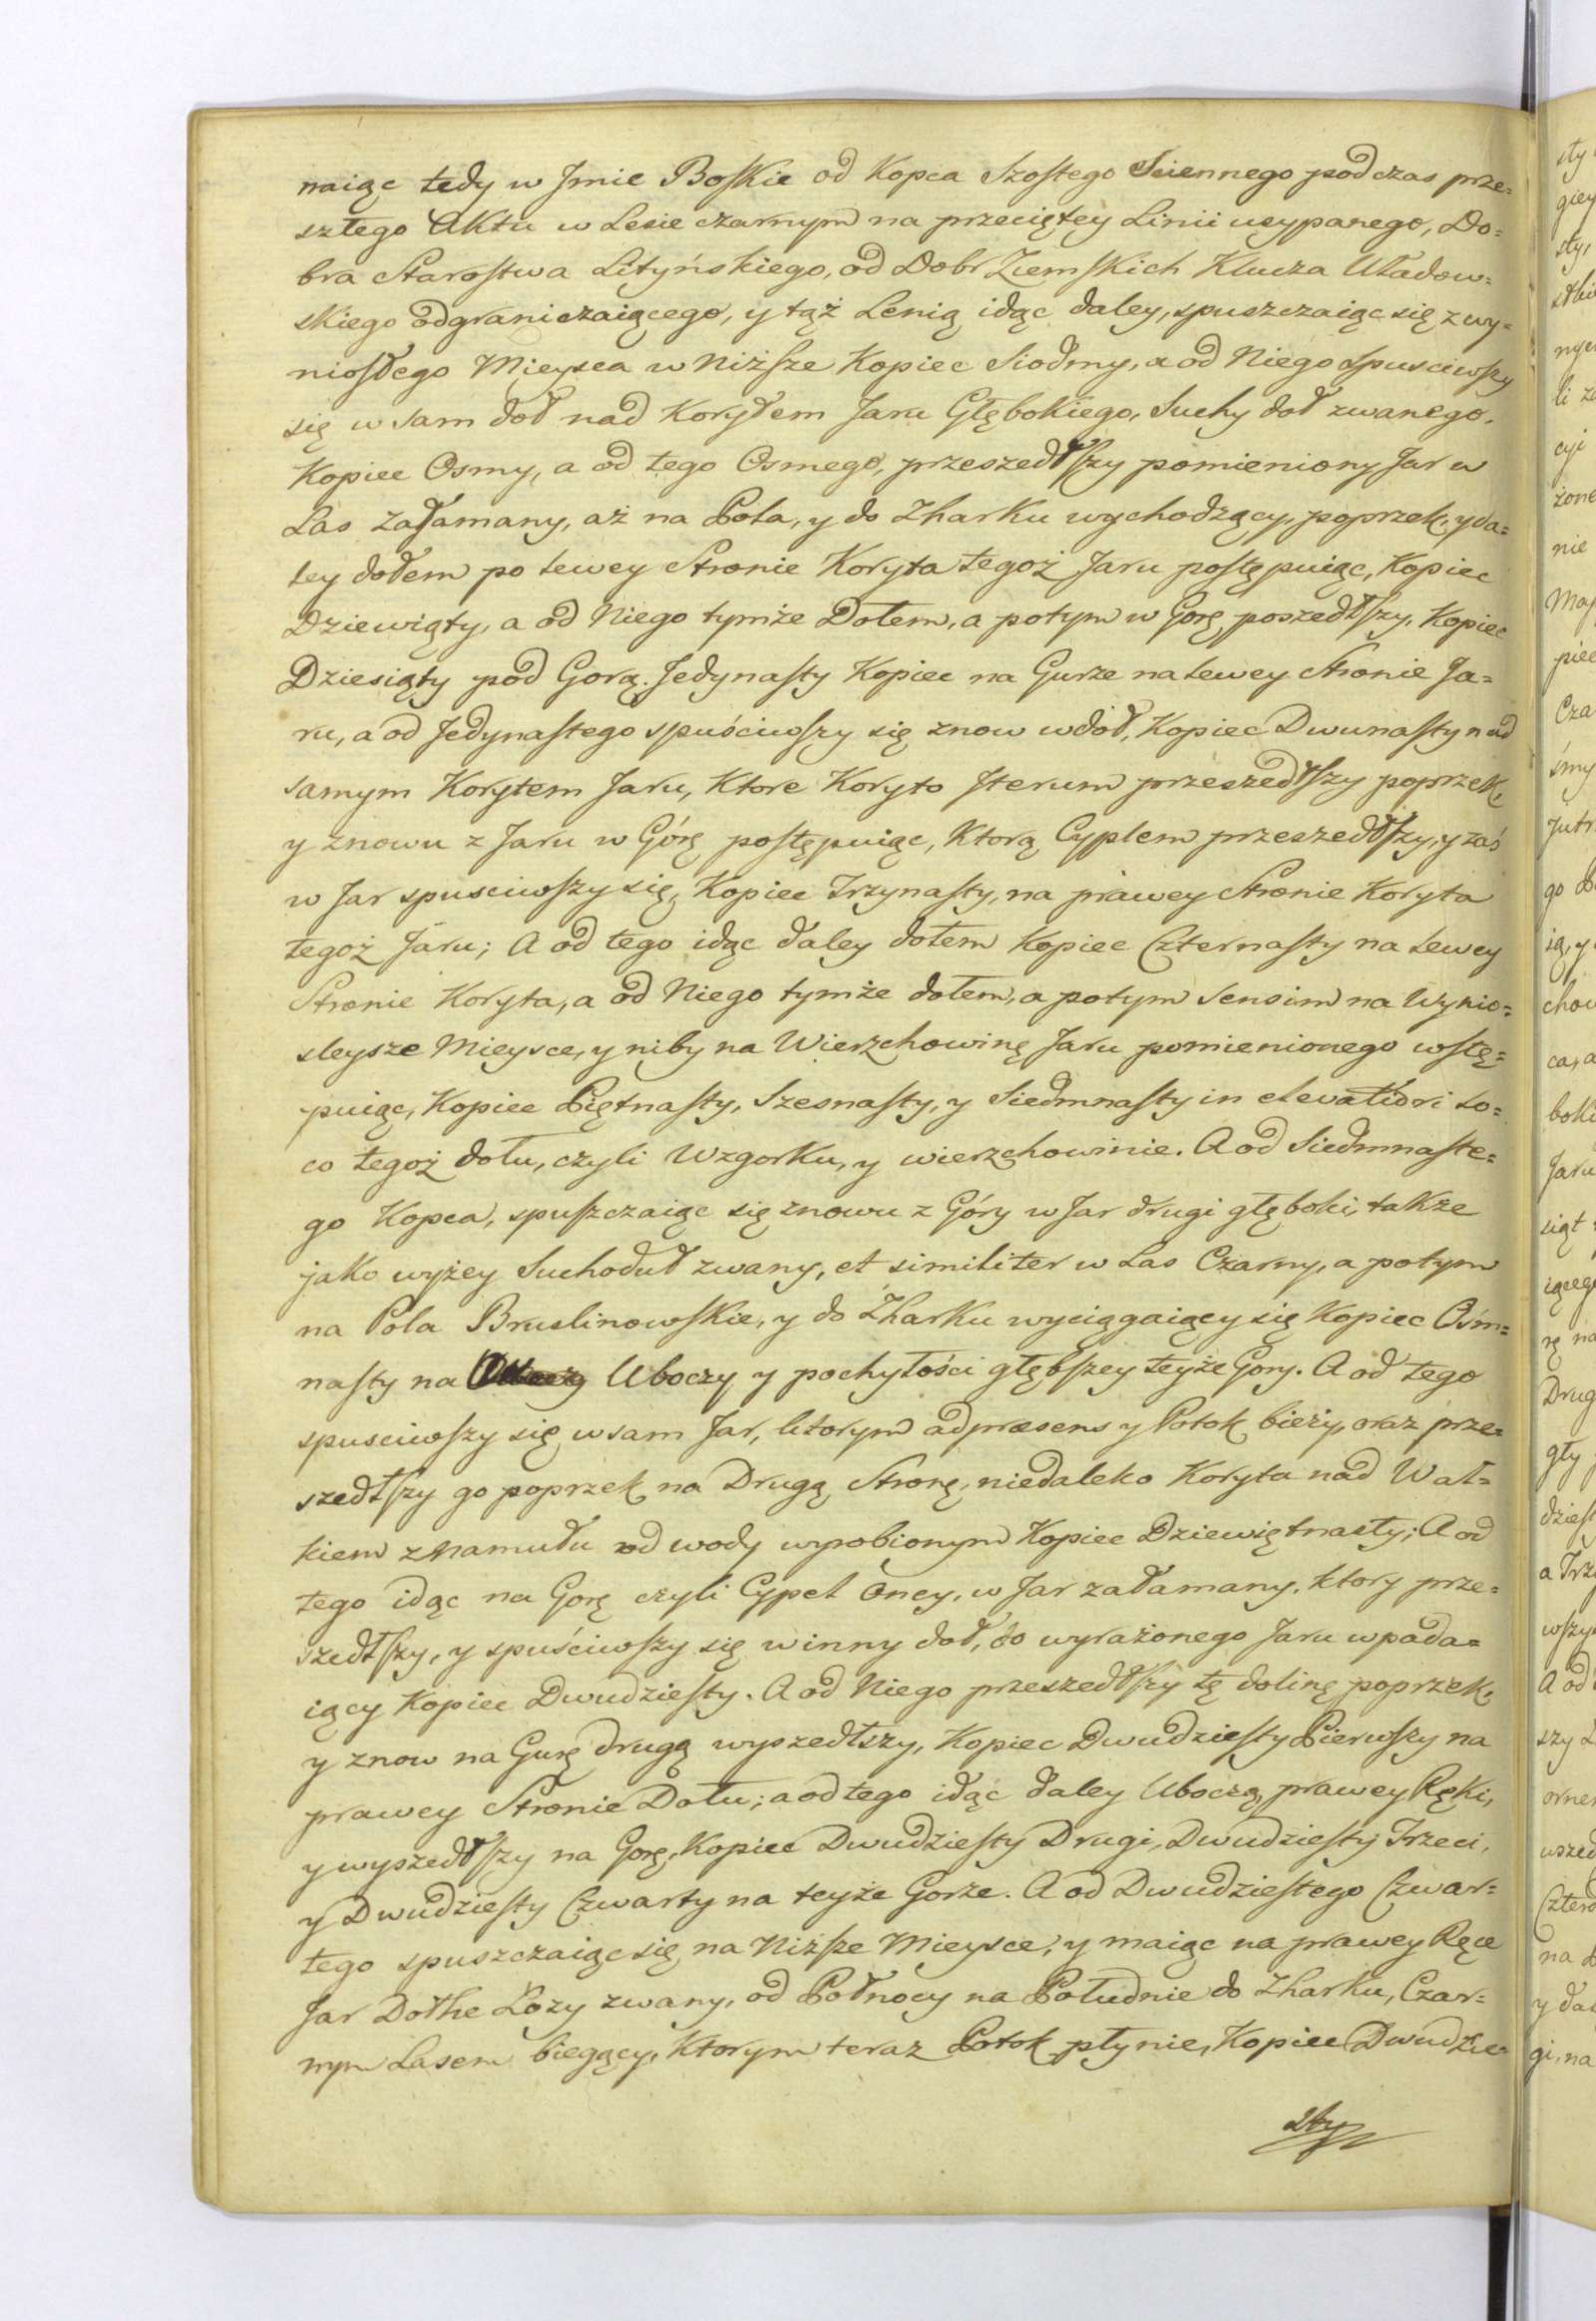 naiąc tedy w Jmie Boskie od Kopca Szostego Sciennego podczas prze=
szłego Aktu w Lesie czarnym na przeciętey Linii usypanego, Do=
bra Starostwa Lityńskiego, od Dobr Ziemskich Klucza Uładow=
skiego odgraniczaiącego, y tąż Lenią idąc daley, spuszczaiąc się z wy=
niosłego Mieysca w Niższe Kopiec Siodmy, a od Niego Spusciwszy
się w sam doł nad Korytem Jaru Głębokiego, Suchy doł zwanego,
Kopiec Osmy, a od tego Osmego, przeszedłszy pomieniony Jar w
Las załamany, aż na Pola, y do Zharku wychodzący, poprzek, y da=
ley dołem po lewey Stronie Koryta tegoż Jaru postępuiąc, Kopiec
Dziewiąty, a od Niego tymże Dołem, a potym w Gorę poszedłszy, Kopiec
Dziesiąty pod Gorą. Jedynasty Kopiec na Gurze na lewey Stronie Ja=
ru, a od Jedynastego spuściwszy się znow w doł, Kopiec Dwunasty nad
samym Korytem Jaru, Ktore Koryto Jterum przeszedłszy poprzek,
y znowu z Jaru w Górę postępuiąc, Ktorą Cyplem przeszedłszy, y zaś
w Jar spusciwszy się, Kopiec Trzynasty, na prawey Stronie Koryta
tegoż Jaru; A od tego idąc daley dołem Kopiec Czternasty na lewey
Stronie Koryta, a od Niego tymże dołem, a potym sensim na Wynio=
sleysze Mieysce, y niby na Wierzchowinę Jaru pomienionego wstę=
puiąc, Kopiec Piętnasty, Szesnasty, y Siedmnasty in elevatiori Lo=
co tegoż dołu, czyli Wzgorku, y wierzchowinie. A od Siedmnaste=
go Kopca, spuszczaiąc się znowu z Góry w Jar drugi głęboki, także
jako wyżey Suchoduł zwany, et similiter w Las Czarny, a potym
na Pola Bruslinowskie, y do Zharku wyciągaiący się Kopiec Ośm=
nasty na Uboczy y pochyłości głębszey teyże Gory. A od tego
spusciwszy się w sam Jar, ktorym adpræsens y Potok bieży, oraz prze=
szedłszy go poprzek na Drugą Stronę, niedaleko Koryta nad Wał=
kiem z Namułu od wody wyrobionym Kopiec Dziewiętnasty; A od
tego idąc na Gorę czyli Cypel Oney, w Jar załamany, ktory prze=
szedłszy, y spuściwszy się w inny doł, do wyrażonego Jaru wpada=
iący Kopiec Dwudziesty. A od Niego przeszedłszy tę dolinę poprzek,
y znow na Gurę drugą wyszedłszy, Kopiec Dwudziesty Pierwszy na
prawey Stronie Dołu; a od tego idąc daley Uboczą prawey Ręki,
y wyszedłszy na Gorę, Kopiec Dwudziesty Drugi, Dwudziesty Trzeci,
y Dwudziesty Czwarty na teyże Gorze. A od Dwudziestego Czwar=
tego spuszczaiąc się na Niższe Mieysce, y maiąc na prawey Ręce
Jar Dołhe Łozy zwany, od Połnocy na Południe do Zharku, Czar=
nym Lasem biegący, Ktorym teraz Potok płynie, Kopiec Dwudzie=
sty